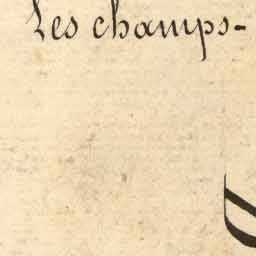 Les champs-